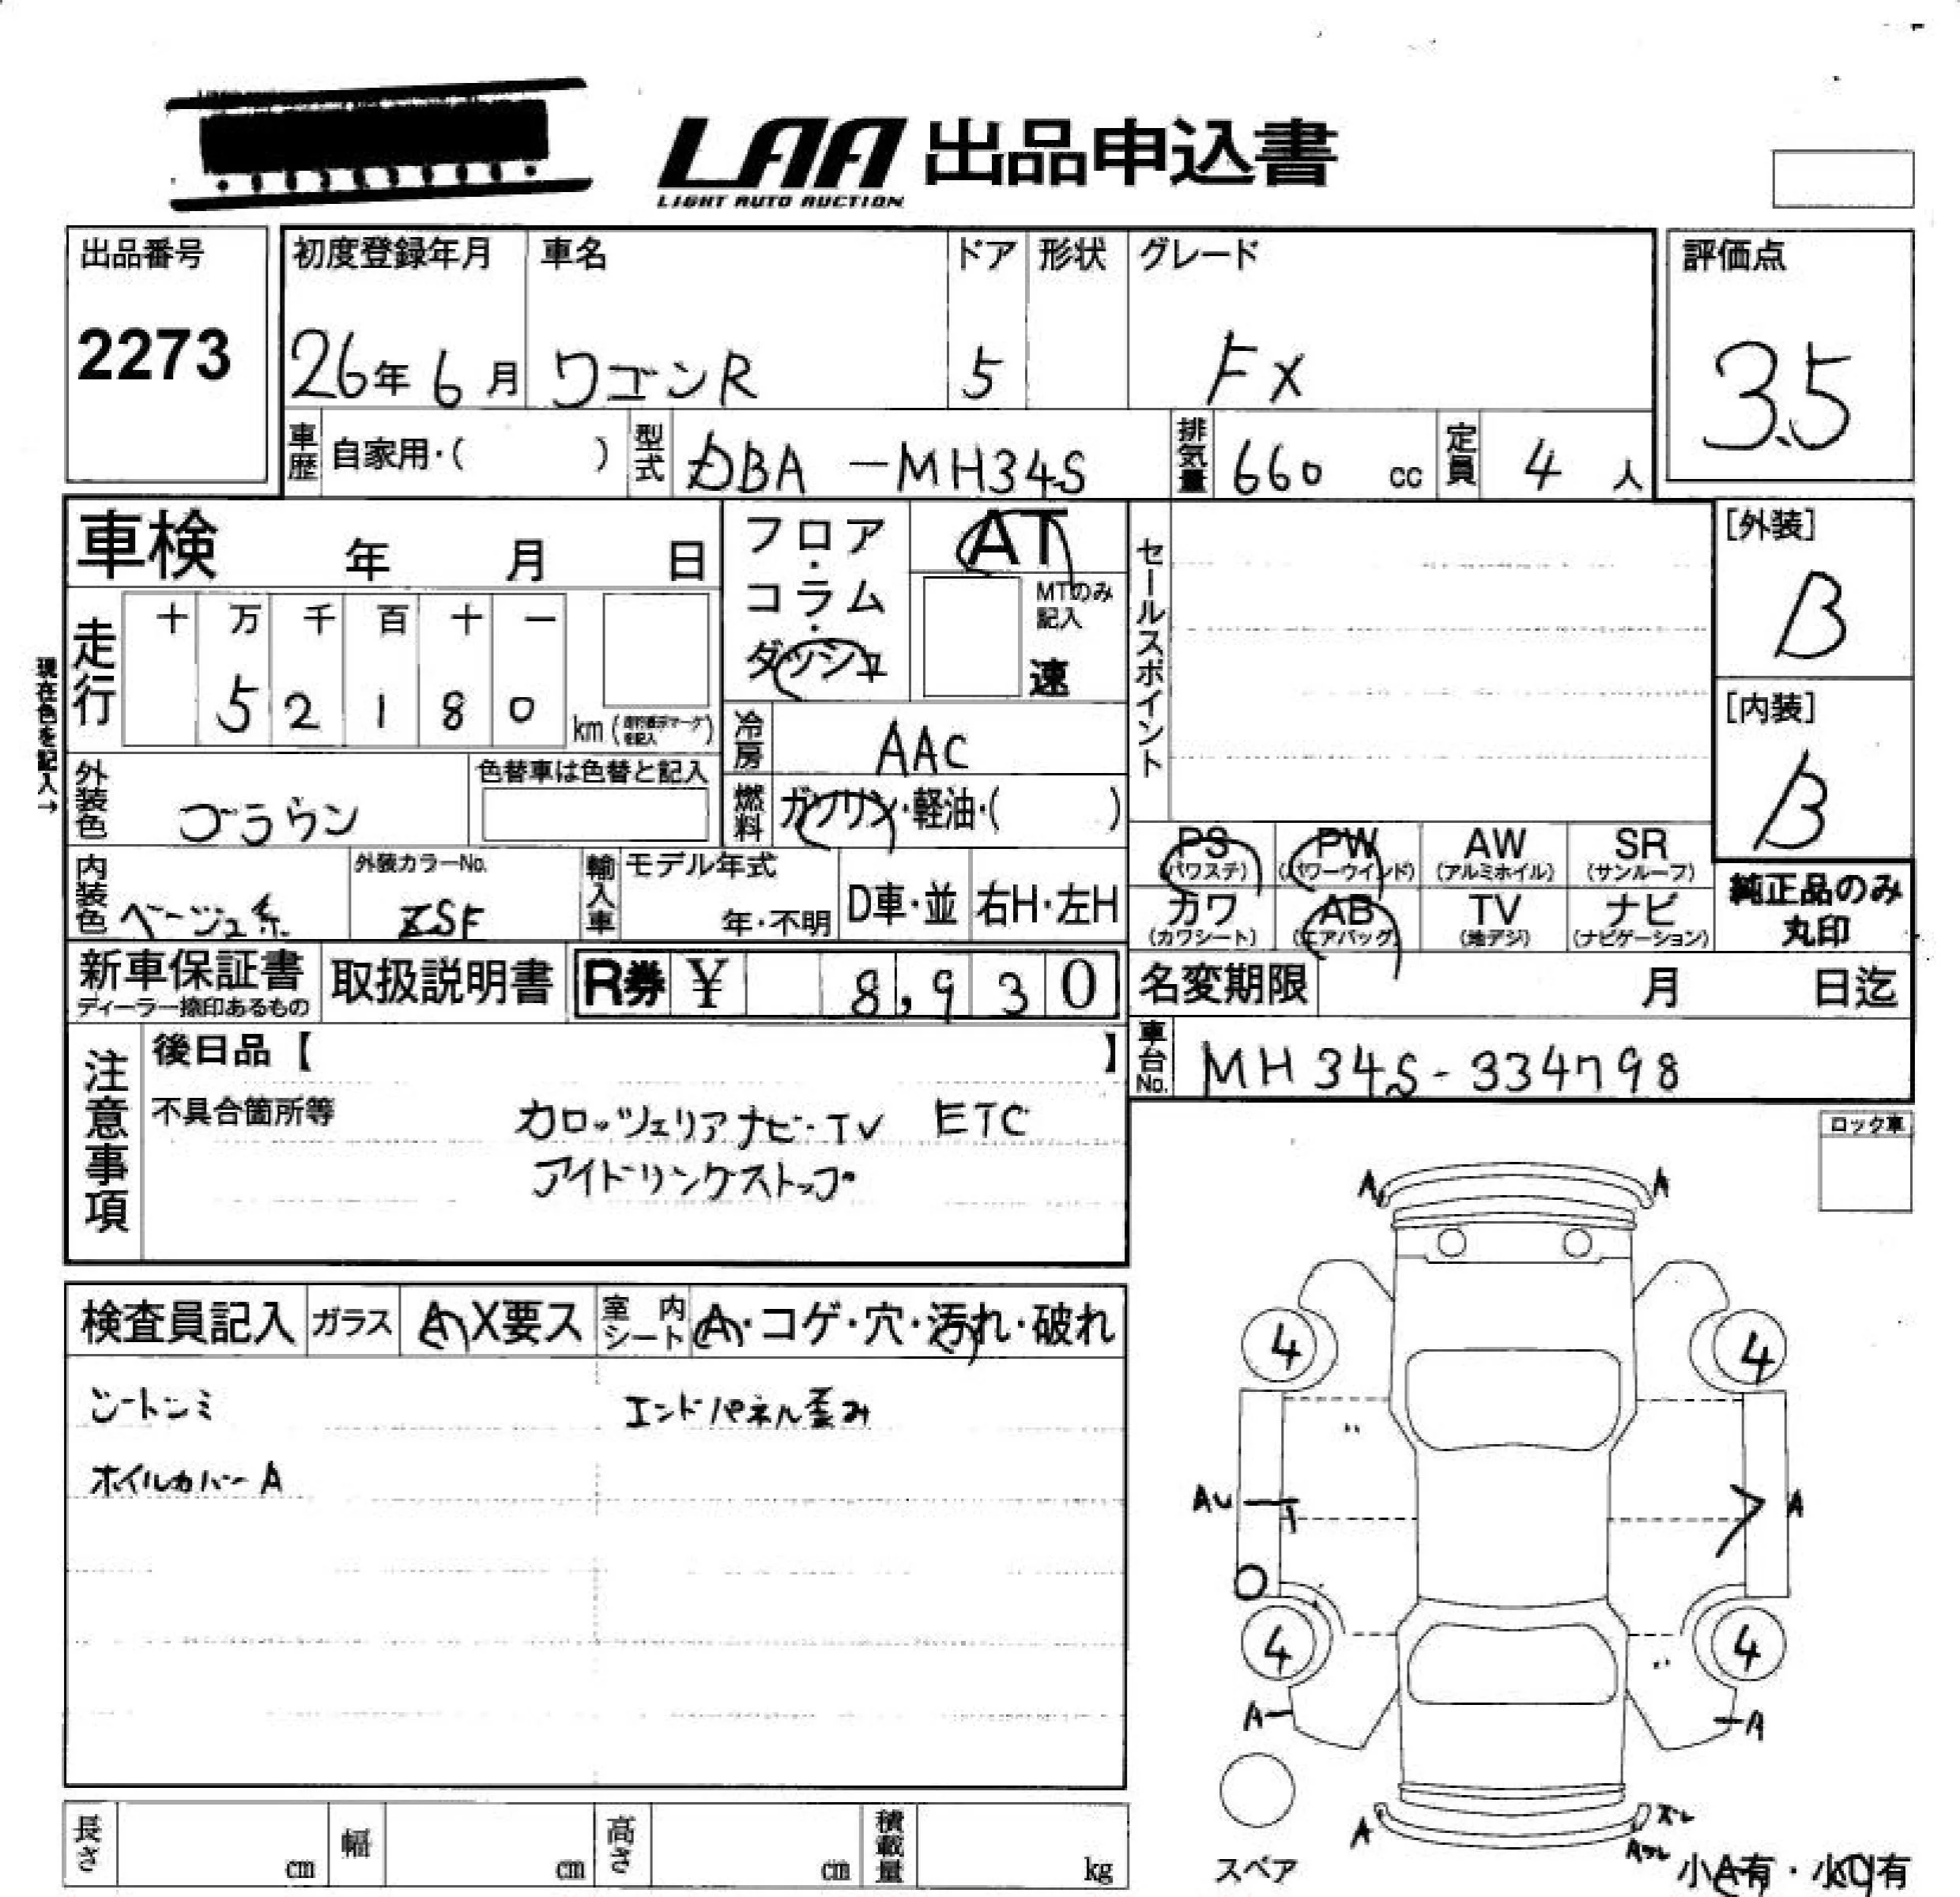 LAA 出品申込書
LIGHT AUTO AUCTION
出品番号
2273
初度登録年月 車名 ドア 形状 グレード
26年 6月 ワゴンR 5 FX
評価点
3.5
車歴 自家用・( ) 型式 DBA-MH34S 排気量 660 cc 定員 4 人
車検 年 月 日
フロア・コラム・ダッシュ
AT
MTのみ記入
速
セールスポイント
[外装]
B
[内装]
B
現在色を記入→
走行 十 万 千 百 十 一
5 2 1 8 0 km
冷房 AAC
外装色 ブラウン
色替車は色替と記入
燃料 ガソリン・軽油・( )
PS (パワステ) PW (パワーウインド) AW (アルミホイル) SR (サンルーフ)
カワ (カワシート) AB (エアバッグ) TV (地デジ) ナビ (ナビゲーション)
純正品のみ丸印
内装色 ベージュ系
外装カラーNo. ZSF
輸入車 モデル年式 年・不明 D車・並 右H・左H
新車保証書 ディーラー捺印あるもの 取扱説明書 R券 ¥ 8,930
名変期限 月 日迄
車台No. MH34S-334798
注意事項
後日品【 】
不具合箇所等
カロッツェリアナビ・TV ETC
アイドリングストップ
ロック車
検査員記入 ガラス A X要ス 室内シート A・コゲ・穴・汚れ・破れ
シートシミ エンドパネル歪み
ホイルカバーA
A A
4 4
AU A
4 4
A A
A ズレ
スペア
小A有・小U有
長さ cm 幅 cm 高さ cm 積載量 kg